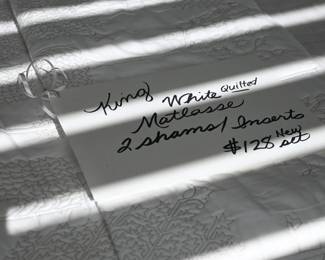 King White Quilted
Matlasse
2 shams/Inserts
$128 New set